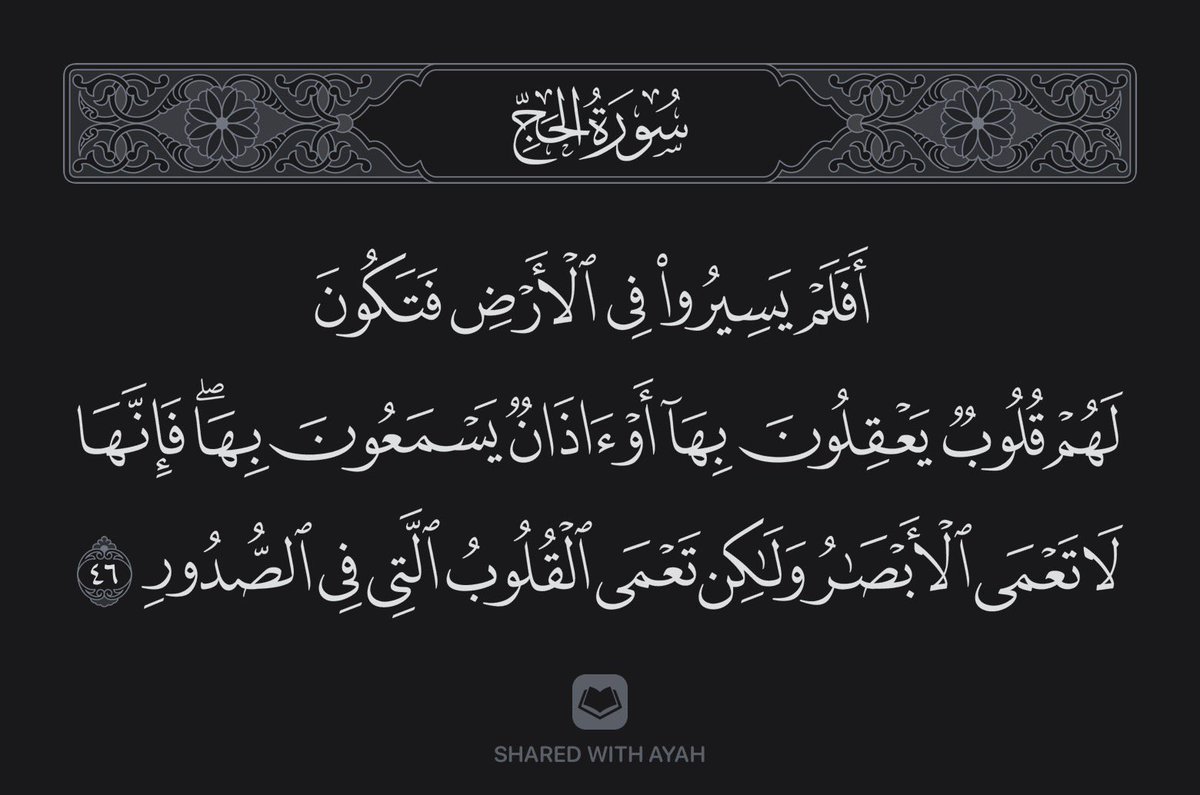 سُورَةُ الحَجِّ
أَفَلَمۡ يَسِيرُواْ فِي ٱلۡأَرۡضِ فَتَكُونَ
لَهُمۡ قُلُوبٞ يَعۡقِلُونَ بِهَآ أَوۡ ءَاذَانٞ يَسۡمَعُونَ بِهَاۖ فَإِنَّهَا
لَا تَعۡمَى ٱلۡأَبۡصَٰرُ وَلَٰكِن تَعۡمَى ٱلۡقُلُوبُ ٱلَّتِي فِي ٱلصُّدُورِ ٤٦
SHARED WITH AYAH